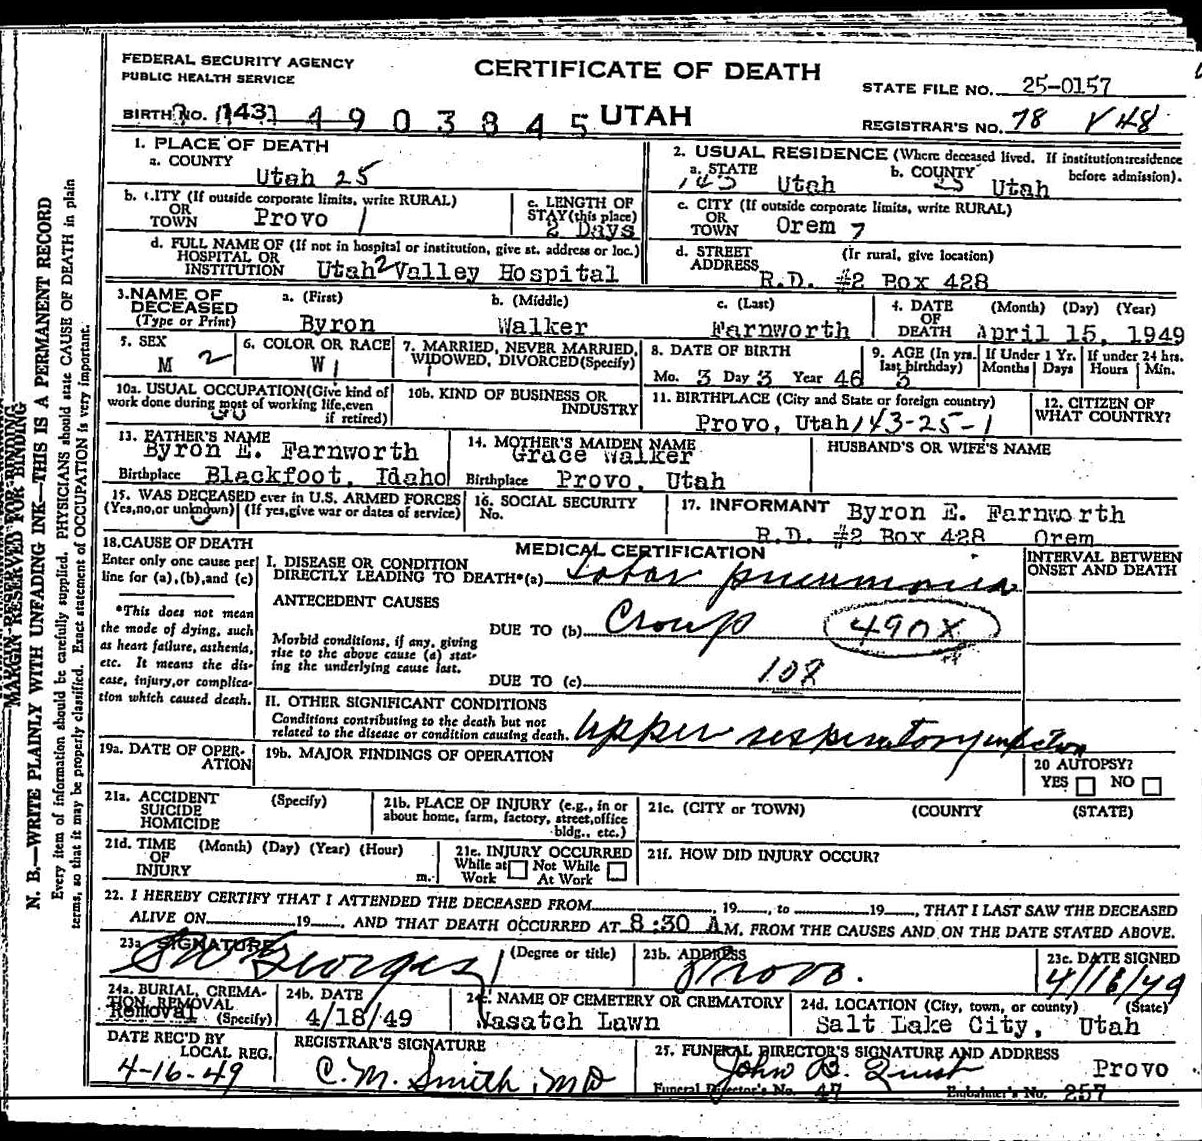 FEDERAL SECURITY AGENCY
PUBLIC HEALTH SERVICE
CERTIFICATE OF DEATH
STATE FILE NO. 25-0157
BIRTH NO. (143) 4903845 UTAH
REGISTRAR'S NO. 78 V48
1. PLACE OF DEATH
a. COUNTY
Utah 25
2. USUAL RESIDENCE (Where deceased lived. If institution:residence before admission).
a. STATE 143 Utah b. COUNTY 25 Utah
b. CITY (If outside corporate limits, write RURAL)
OR
TOWN Provo 1
c. LENGTH OF
STAY(this place)
2 Days
c. CITY (If outside corporate limits, write RURAL)
OR
TOWN Orem 7
d. FULL NAME OF (If not in hospital or institution, give st. address or loc.)
HOSPITAL OR
INSTITUTION Utah 2 Valley Hospital
d. STREET (If rural, give location)
ADDRESS R.D. #2 Box 428
3.NAME OF DECEASED
(Type or Print)
a. (First) b. (Middle) c. (Last)
Byron Walker Farnworth
4. DATE OF DEATH (Month) (Day) (Year)
April 15, 1949
5. SEX
M 2
6. COLOR OR RACE
W 1
7. MARRIED, NEVER MARRIED,
WIDOWED, DIVORCED(Specify)
1
8. DATE OF BIRTH
Mo. 3 Day 3 Year 46
9. AGE (In yrs. last birthday)
3
If Under 1 Yr.
Months Days
If under 24 hrs.
Hours Min.
10a. USUAL OCCUPATION(Give kind of
work done during most of working life,even
if retired)
10b. KIND OF BUSINESS OR
INDUSTRY
11. BIRTHPLACE (City and State or foreign country)
Provo, Utah 143-25-1
12. CITIZEN OF
WHAT COUNTRY?
13. FATHER'S NAME
Byron E. Farnworth
Birthplace Blackfoot, Idaho
14. MOTHER'S MAIDEN NAME
Grace Walker
Birthplace Provo, Utah
HUSBAND'S OR WIFE'S NAME
15. WAS DECEASED ever in U.S. ARMED FORCES
(Yes,no,or unknown) (If yes,give war or dates of service)
16. SOCIAL SECURITY
No.
17. INFORMANT Byron E. Farnworth
R.D. #2 Box 428 Orem
18.CAUSE OF DEATH
Enter only one cause per
line for (a),(b),and (c)
*This does not mean
the mode of dying, such
as heart failure, asthenia,
etc. It means the dis-
ease, injury,or complica-
tion which caused death.
MEDICAL CERTIFICATION
INTERVAL BETWEEN
ONSET AND DEATH
I. DISEASE OR CONDITION
DIRECTLY LEADING TO DEATH*(a) Lobar pneumonia
ANTECEDENT CAUSES
DUE TO (b) Croup 490X
Morbid conditions, if any, giving
rise to the above cause (a) stat-
ing the underlying cause last.
DUE TO (c) 108
II. OTHER SIGNIFICANT CONDITIONS
Conditions contributing to the death but not
related to the disease or condition causing death. Upper respiratory infection
19a. DATE OF OPER-
ATION
19b. MAJOR FINDINGS OF OPERATION
20 AUTOPSY?
YES NO
21a. ACCIDENT (Specify)
SUICIDE
HOMICIDE
21b. PLACE OF INJURY (e.g., in or
about home, farm, factory, street,office
bldg., etc.)
21c. (CITY or TOWN) (COUNTY) (STATE)
21d. TIME (Month) (Day) (Year) (Hour)
OF
INJURY m.
21e. INJURY OCCURRED
While at Work Not While At Work
21f. HOW DID INJURY OCCUR?
22. I HEREBY CERTIFY THAT I ATTENDED THE DECEASED FROM 19 , to 19 , THAT I LAST SAW THE DECEASED
ALIVE ON 19 , AND THAT DEATH OCCURRED AT 8:30 AM. FROM THE CAUSES AND ON THE DATE STATED ABOVE.
23a. SIGNATURE (Degree or title)
S W Georges
23b. ADDRESS
Provo.
23c. DATE SIGNED
4/16/49
24a. BURIAL, CREMA-
TION, REMOVAL
Removal (Specify)
24b. DATE
4/18/49
24c. NAME OF CEMETERY OR CREMATORY
Wasatch Lawn
24d. LOCATION (City, town, or county) (State)
Salt Lake City, Utah
DATE REC'D BY
LOCAL REG.
4-16-49
REGISTRAR'S SIGNATURE
C. M. Smith, MD
25. FUNERAL DIRECTOR'S SIGNATURE AND ADDRESS
John B. Provo
Funeral Director's No. 47 Embalmer's No. 257
MARGIN RESERVED FOR BINDING
N. B.—WRITE PLAINLY WITH UNFADING INK—THIS IS A PERMANENT RECORD
Every item of information should be carefully supplied. PHYSICIANS should state CAUSE OF DEATH in plain
terms, so that it may be properly classified. Exact statement of OCCUPATION is very important.